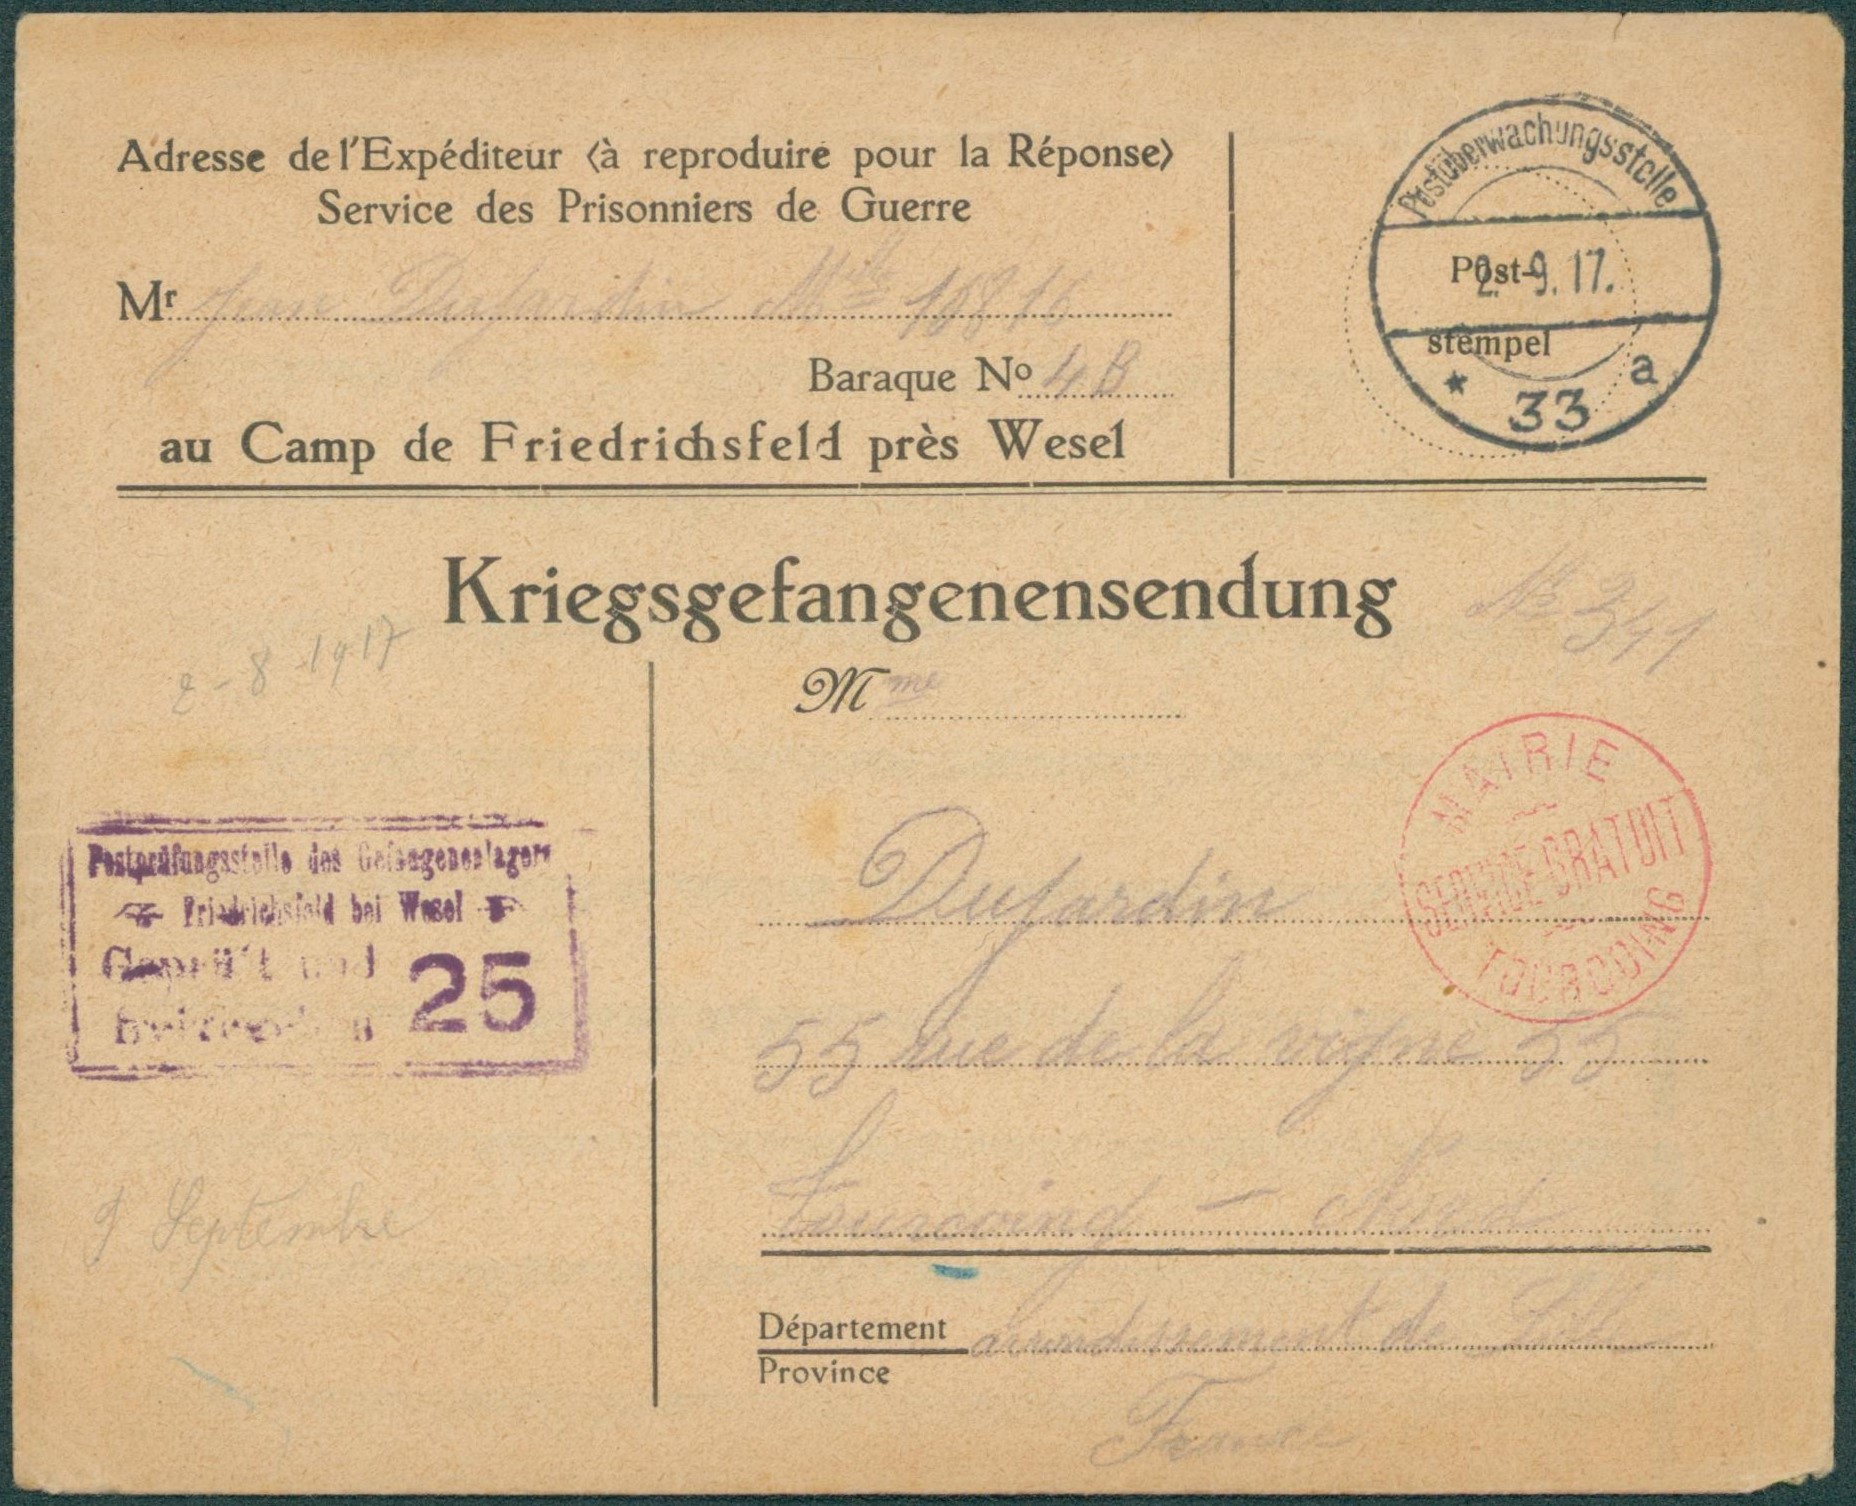 Adresse de l'Expéditeur (à reproduire pour la Réponse)
Service des Prisonniers de Guerre
Mr Jean Dujardin Mle 16816
Baraque No 4B
au Camp de Friedrichsfeld près Wesel
Postüberwachungsstelle
Post-
2. 9. 17.
stempel
* 33 a
Kriegsgefangenensendung
No 341
2-8 1917
Mme
MAIRIE
SERVICE GRATUIT
TOURCOING
Postprüfungsstelle des Gefangenenlagers
Friedrichsfeld bei Wesel
Geprüft und
25
Dujardin
55 rue de la vigne 55
Tourcoing - Nord
9 Septembre
Département
Province
arrondissement de Lille
France